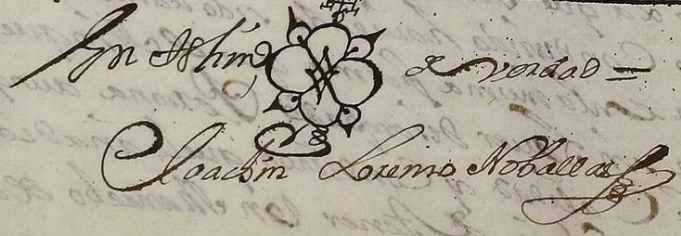 En testimo de verdad =
Joachin Lorenzo Noballas